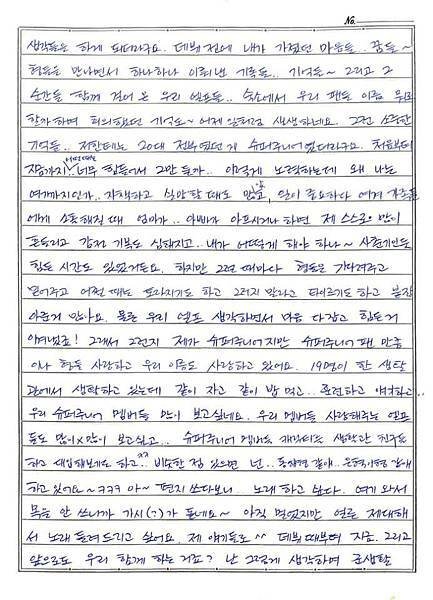 No.
생각들은 하게 되더라구요. 데뷔 전에 내가 가졌던 마음들.. 꿈들~
형들을 만나면서 하나하나 이뤄낸 기록들.. 기억들~ 그리고 그
순간들 함께 걸어 온 우리 엘프들.. 숙소에서 우리 팬들 이름 뭐로
할까하며 회의했던 기억도~ 어제 일처럼 생생하네요. 그런 소중한
기억들.. 저한테는 20대 전부였던 게 슈퍼주니어였더라구요. 처음부터
지금까지 어떤때는 너무 힘들어서 그만 둘까.. 이렇게 노력하는데 왜 나는
여기까지인가.. 자책하고 실망할 때도 많고, 일이 중요하다 여겨 가족들
에게 소홀해질 때 엄마가.. 아빠가 아프시거나 하면 제 스스로 많이
흔들리고 감정 기복도 심해지고.. 내가 어떻게 해야 하나~
힘든 시간도 있었거든요. 하지만 그런 때마다 형들은 기다려주고
믿어주고 어쩔 때는 토라지기도 하고 그러지 말라고 타이르기도 하고
많아요. 물론 우리 엘프 생각하면서 마음 다잡고 힘든거
이겨냈죠! 그래서 그런지 제가 슈퍼주니어지만 슈퍼주니어 팬 만큼
이나 형들 사랑하고 우리 이름도 사랑하고 있어요. 19명이 한 생활
관에서 생활하고 있는데 같이 자고 같이 밥 먹고.. 훈련하고 얘기하고..
우리 슈퍼주니어 멤버들 많이 보고싶네요. 우리 멤버들 사랑해주는 엘프
들도 많이x많이 보고싶고.. 슈퍼주니어 멤버들 캐릭터를 생활관 친구들
하고 대입해보기도 하고^^ 비슷한 점 있으면 넌.. 동해형 같애.. 은혁이형 같애
하고 있어요~ ㅋㅋㅋ 아~ 편지 쓰다보니 노래 하고 싶다. 여기 와서
목을 안 쓰니까 가시(?)가 돋네요~ 아직 멀었지만 얼른 제대해
서 노래 들려드리고 싶어요. 제 얘기들로^^ 데뷔 때부터 지금. 그리고
앞으로도 우리 함께 하는 거죠? 난 그렇게 생각하며 군생활